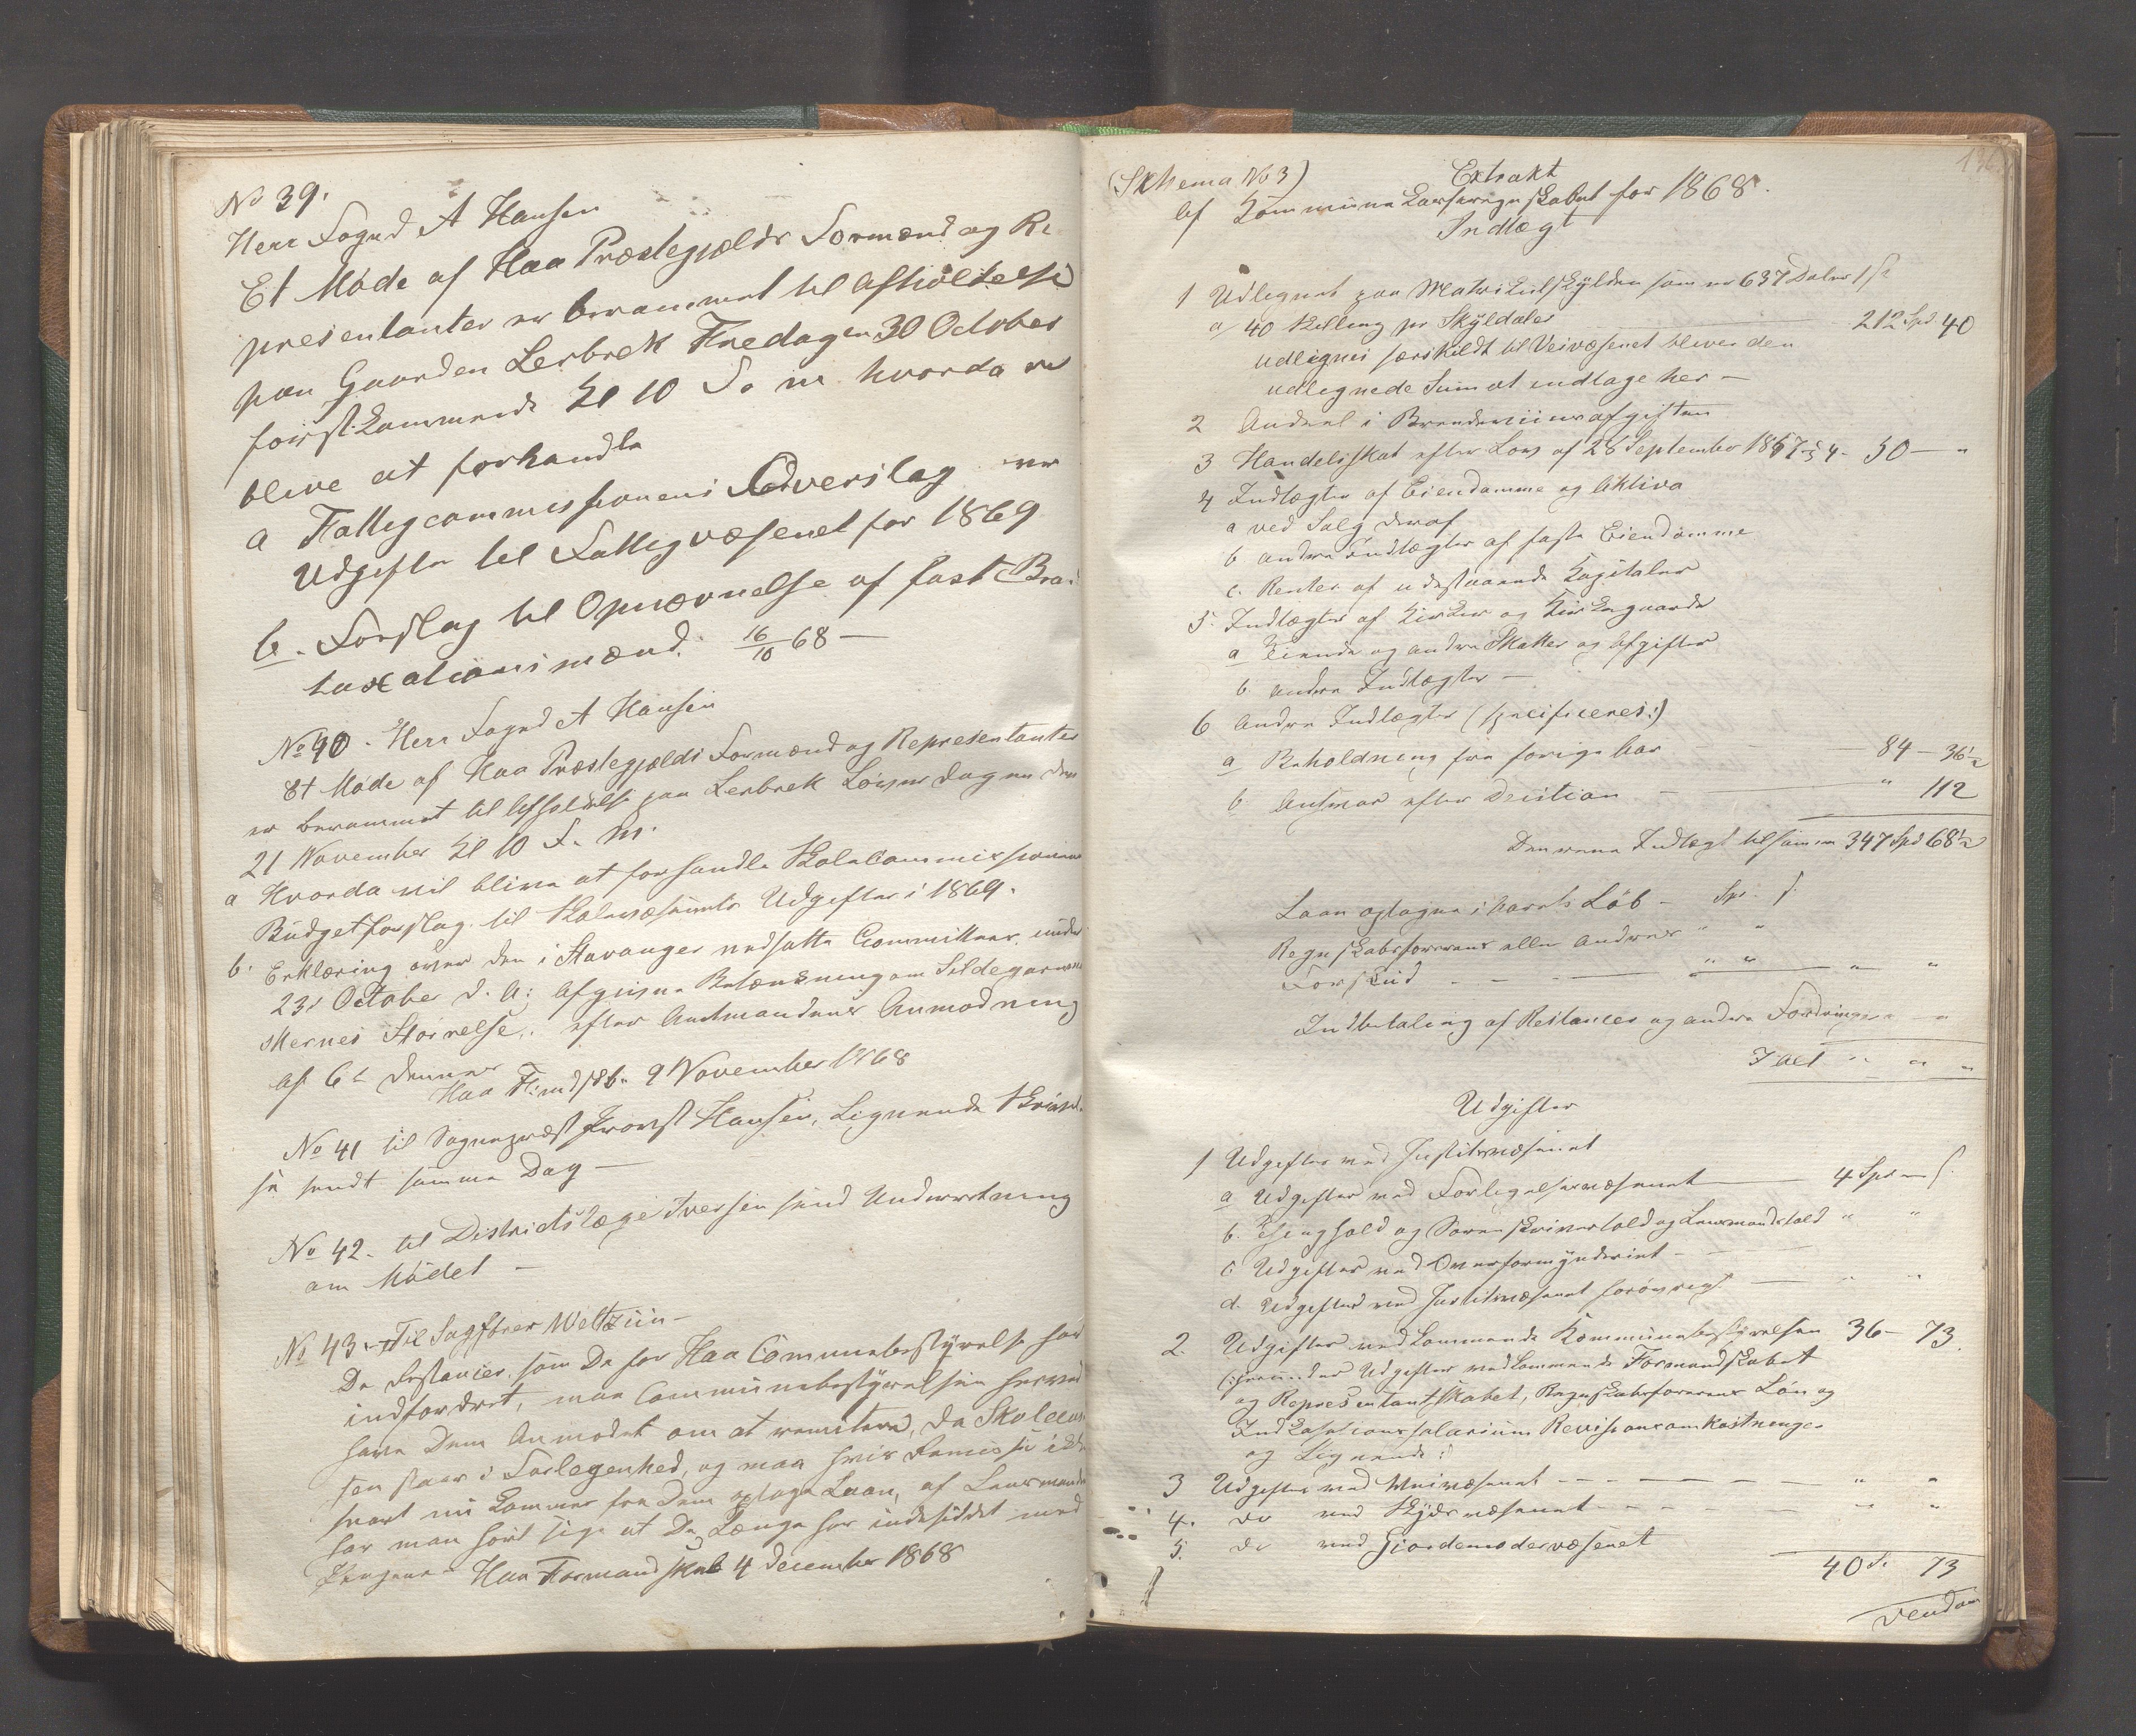 No 39.
Herr Foged A Hansen
Et Møde af Haa Præstegjælds Formænd og Re
presentanter er berammet til Afholdelse
paa Gaarden Lerbrek Fredagen 30 October
førstkommende Kl 10 F. m. hvorda vil
blive at forhandle
a Fattigcommissionens Overslag over
Udgifter til Fattigvæsenet for 1869
b. Forslag til Opnævnelse af faste Bra.
taxationsmænd. 16/10 68 —
No 40. Herr Foged A Hansen
Et Møde af Haa Præstegjælds Formænd og Representanter
er berammet til Afholdelse paa Lerbrek Løverdagen den
21 November Kl 10 F. M.
a Hvorda vil blive at forhandle Skolecommissionens
Budgetforslag til Skolevæsenets Udgifter i 1869.
b. Erklæring over den i Stavanger nedsatte Committees under
23de October d. A. afgivne Betænkning om Sildegarns
Størrelse, efter Amtmandens Anmodning
af 6te dennes
Haa F:mdskb. 9 November 1868
No 41 til Sogneprest Provst Hansen, Lignende Skrivel.
se sendt samme Dag —
No 42. til Districtslæge Iversen send Underretning
om Mødet —
No 43. Til Sagfører Weltzin —
De Restancer, som De for Haa Communebestyrelse har
indfordret, maa Communebestyrelsen herved
have Dem Anmodet om at remitere, da Skolecas
sen staar i Forlegenhed, og maa hvis Remisse ikke
snart nu kommer fra Dem optage Laan, af Lensmanden
har man hørt sige at De Længe har indesiddet med
Pengene — Haa Formandskab 4 December 1868
(Skhema No 3) Extrakt
Af Kommunekasseregnskabet for 1868.
Indtægt
1 Udlignet paa Matrikulskylden som er 637 Daler 1 s
a 40 skilling pr Skyldaler — 212 Spd. 40
udlignes særskildt til Veivæsenet bliver den
udlignede Sum at indtage her —
2 Andeel i Brændeviinsafgiften
3 Handelsskat efter Lov af 28 September 1857 § 4 - 50 — "
4 Indtægter af Eiendomme og Aktiva
a ved Salg deraf
b andre Indtægter af faste Eiendomme
c. Renter af udestaaende Kapitaler
5. Indtægter af Kirker og Kirkegaarde
a Tiende og andre Skatter og Afgifter
b. andre Indtægter —
6 Andre Indtægter (specificeres:)
a Beholdning fra forige Aar — 84 — 36½
b Ansvar efter Decition — " 112
Denne Indtægt tilsamm 347 Spd 68½
Laan optagne i Aarets Løb — Spd. s.
Regnskabsførerens eller Andres " "
Forskud - - — " " " "
Indbetaling af Restancer og andre Fordringer " "
I alt " " "
Udgifter
1 Udgifter ved Justitsvæsenet
a Udgifter ved Forligelsesvæsenet — 4 Spd — s.
b. Thinghold og Sorenskrivertold og Lensmandstold " "
c Udgifter ved Overformynderiet -
d. Udgifter ved Justitsvæsenet forøvrigt — " "
2. Udgifter vedkommende Kommunebestyrelsen 36 — 73.
(:herunder Udgifter vedkommende Formandskabet
og Representantskabet, Regnskabsførerens Løn og
Inkassationssalarium Revisionsomkostninger
og Lignende:)
3 Udgifter ved Veivæsenet - - - — — " "
4. do ved Skydsvæsenet - - - — " "
5. do ved Giordemodervæsenet
40 S. 73